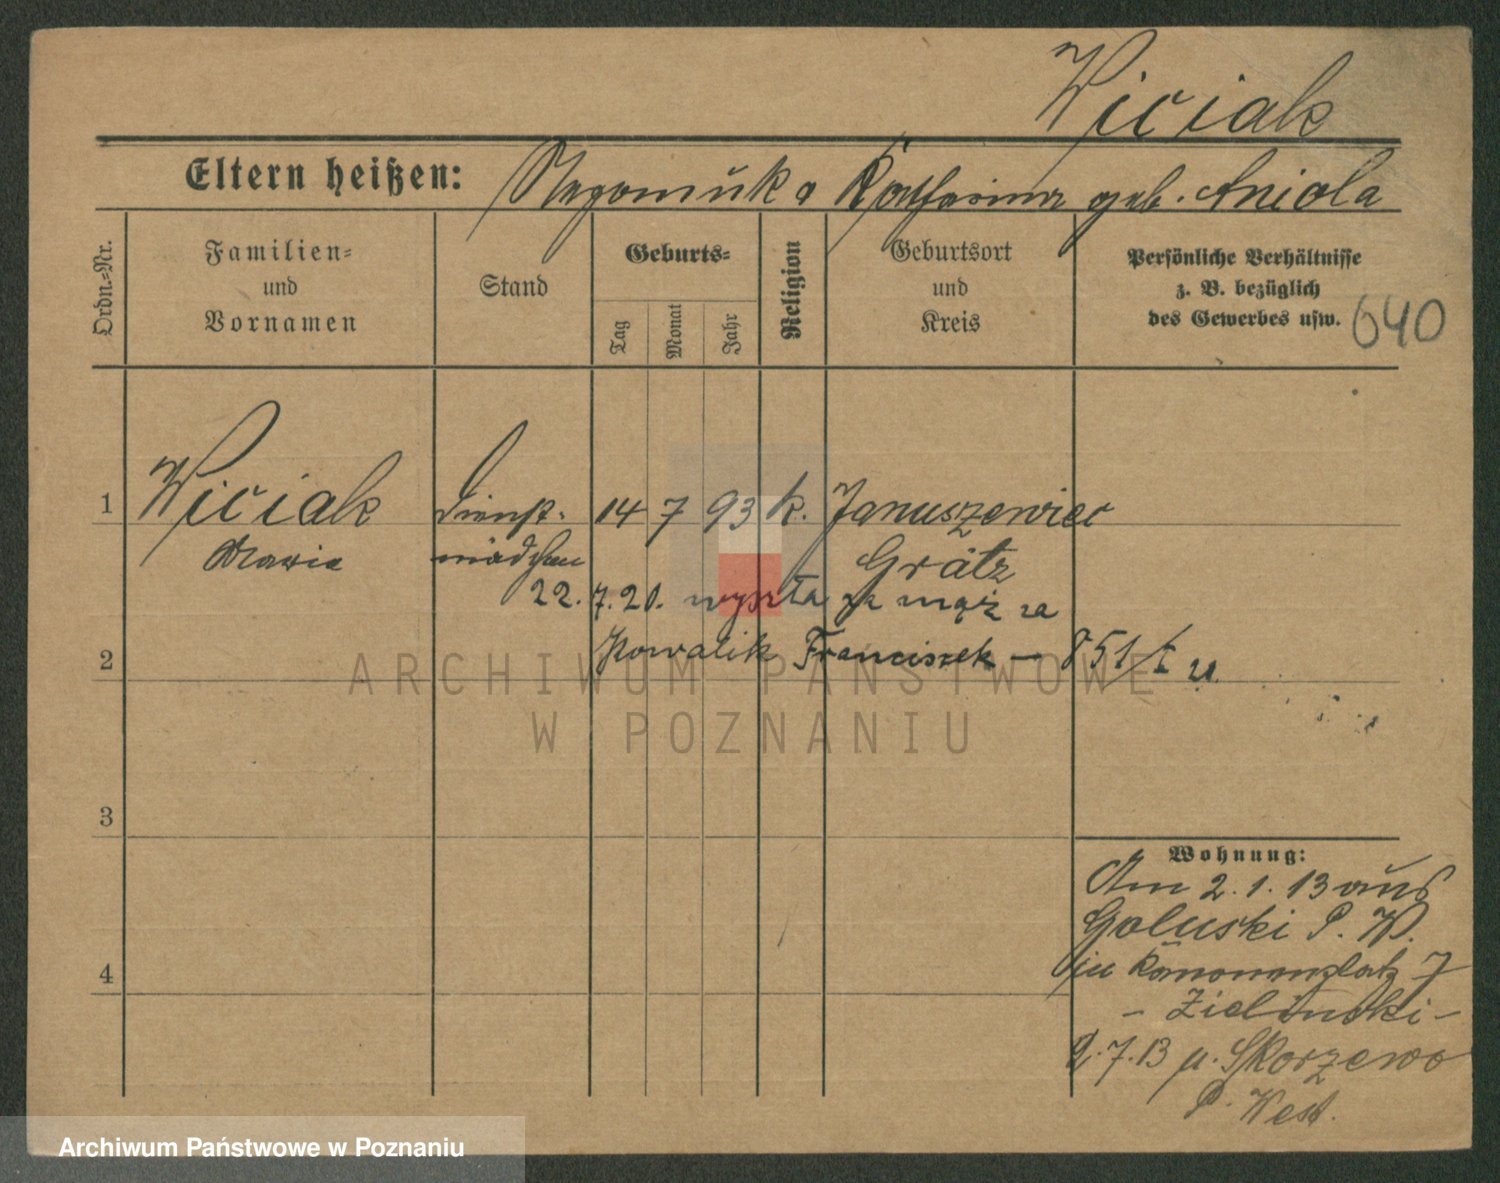 Wiciak
Eltern heißen: Nepomuk u Katharina geb. Aniola
Ordn.=Nr.
Familien=
und
Vornamen
Stand
Geburts=
Tag
Monat
Jahr
Religion
Geburtsort
und
Kreis
Persönliche Verhältnisse
z. B. bezüglich
des Gewerbes usw.
640
1 Wiciak Dienst- 14 7 93 k. Januszewiec
Maria mädchen Grätz
22.7.20. wyszła za mąż za
2 Kowalik Franciszek — 851/I u
ARCHIWUM PAŃSTWOWE
W POZNANIU
3
Wohnung:
Am 2.1.13 aus
Goluski P. W.
in Kanonenplatz 7
- Zielinski -
2.7.13 n. Skorzewo
P. West.
4
Archiwum Państwowe w Poznaniu